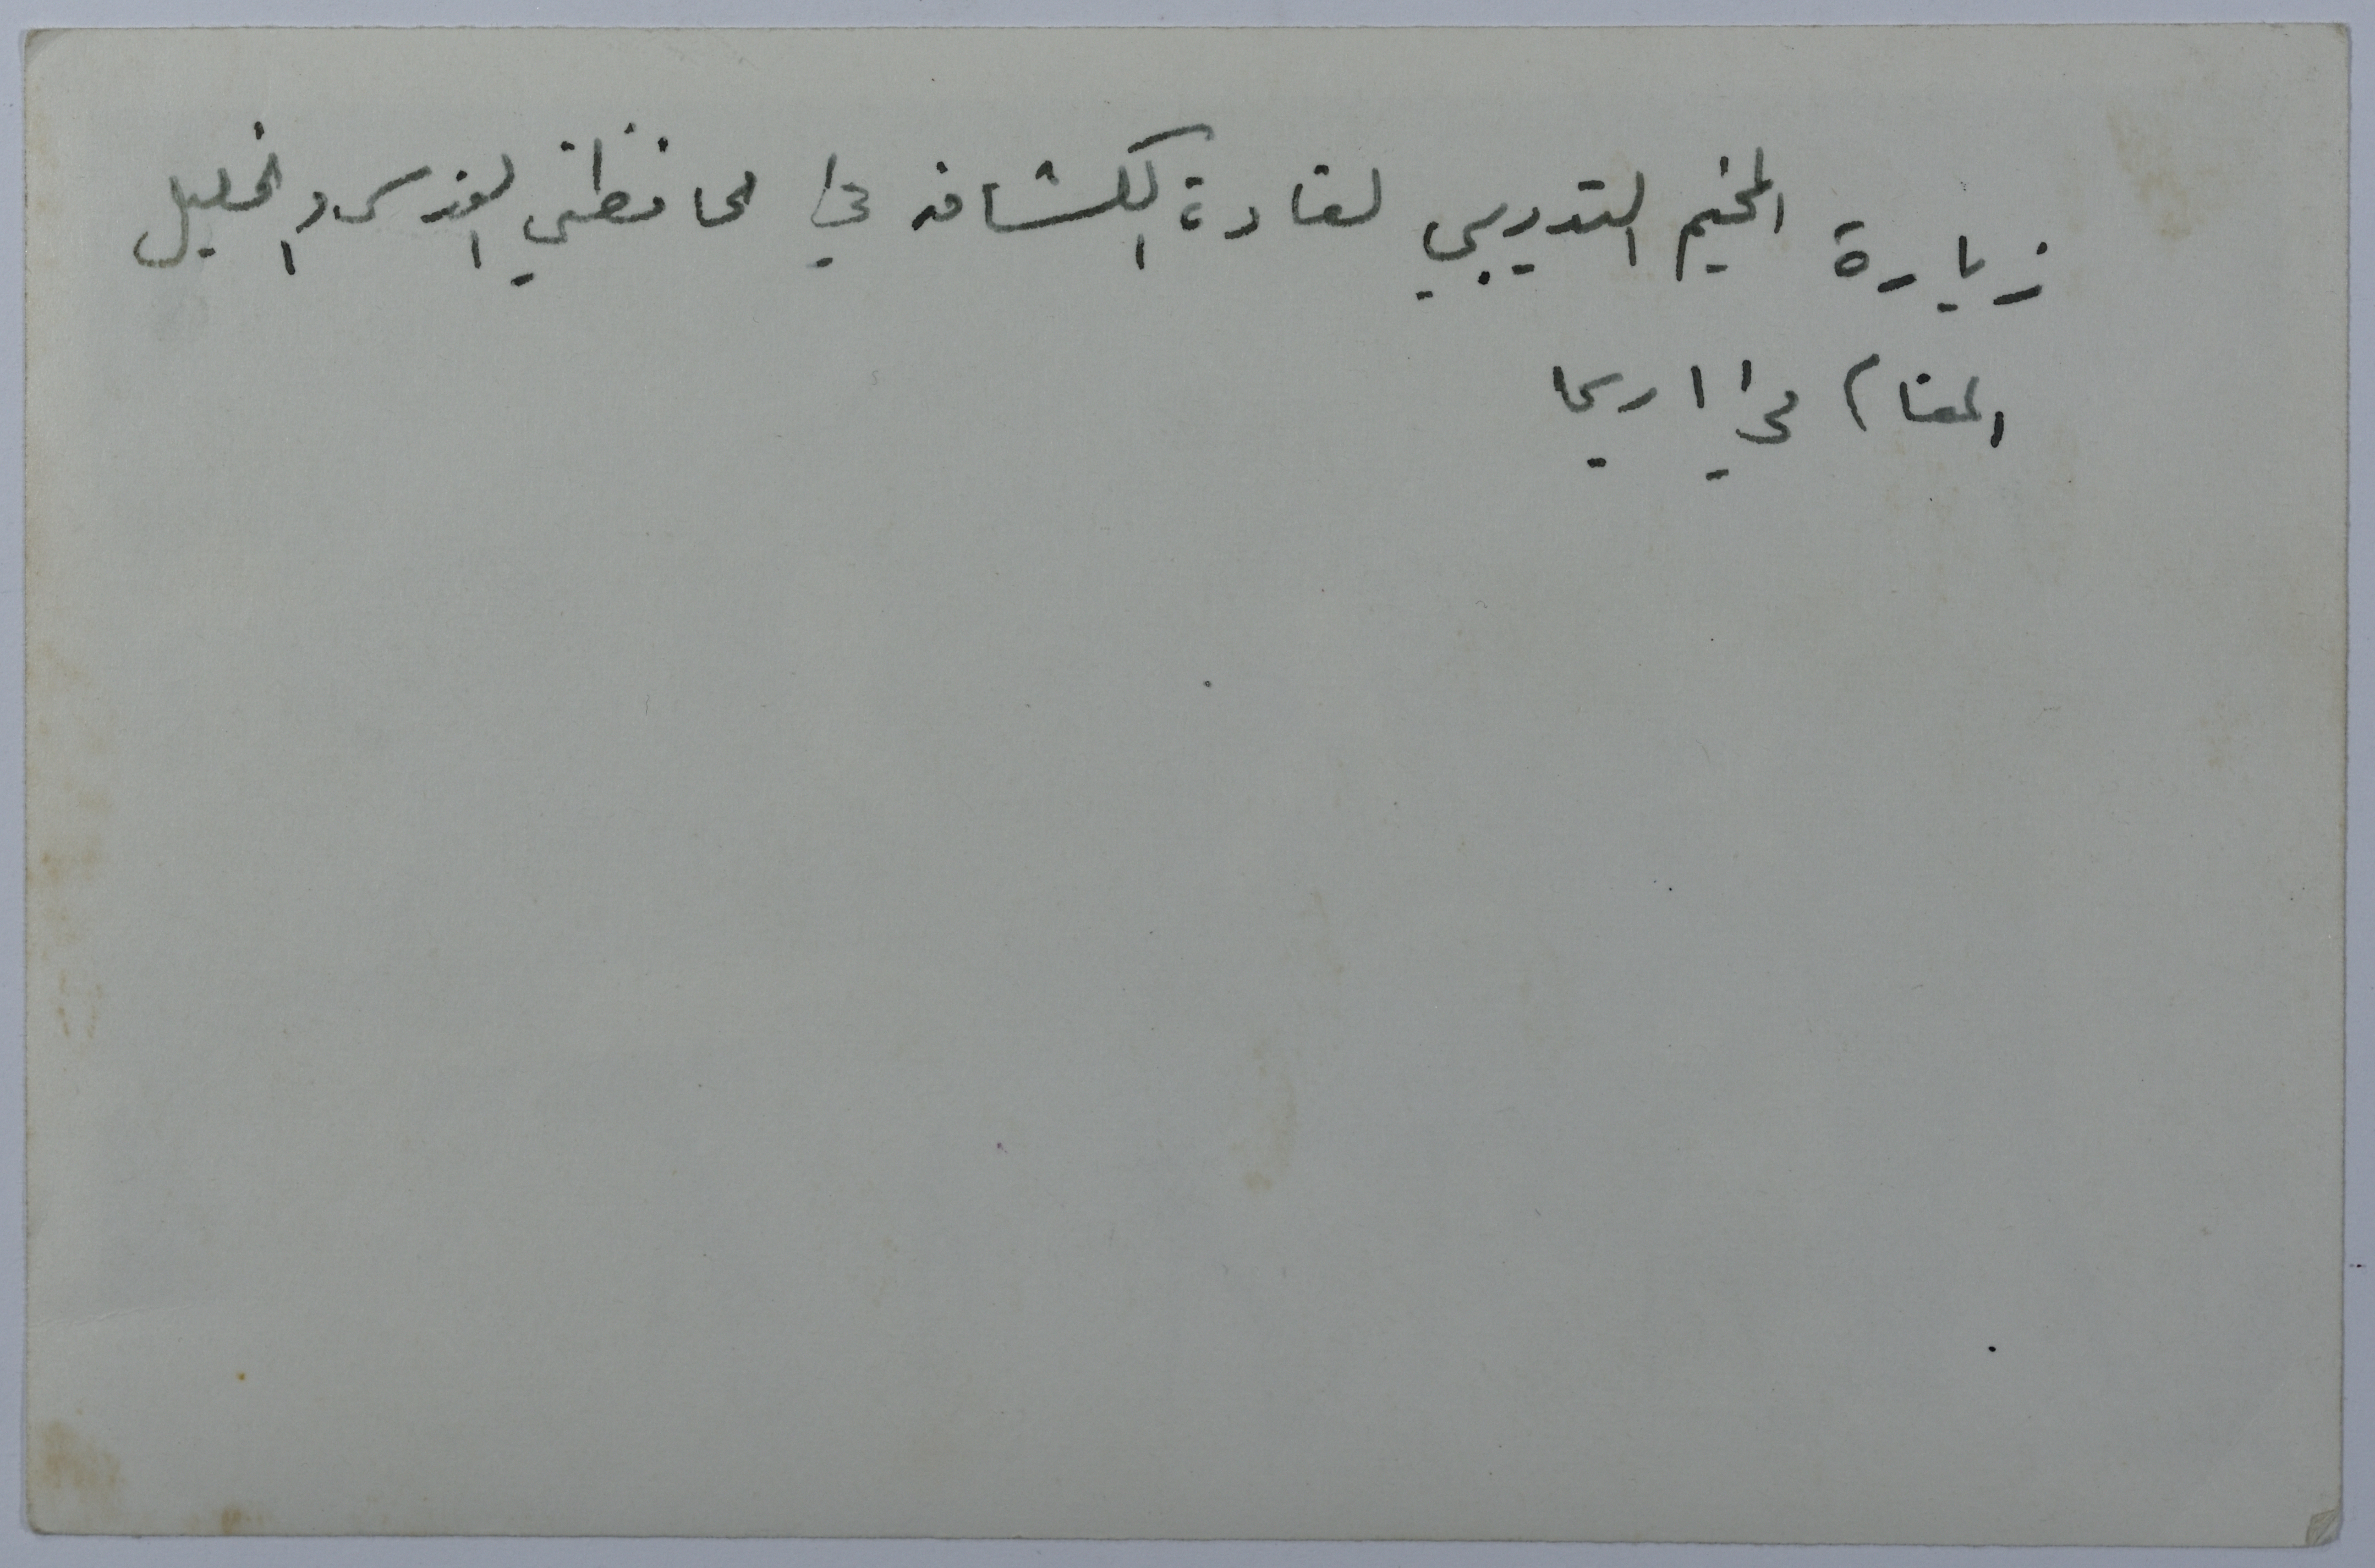 زيارة المخيم التدريبي لقادة الكشافه في محافظتي القدس والخليل
المقام في اريحا